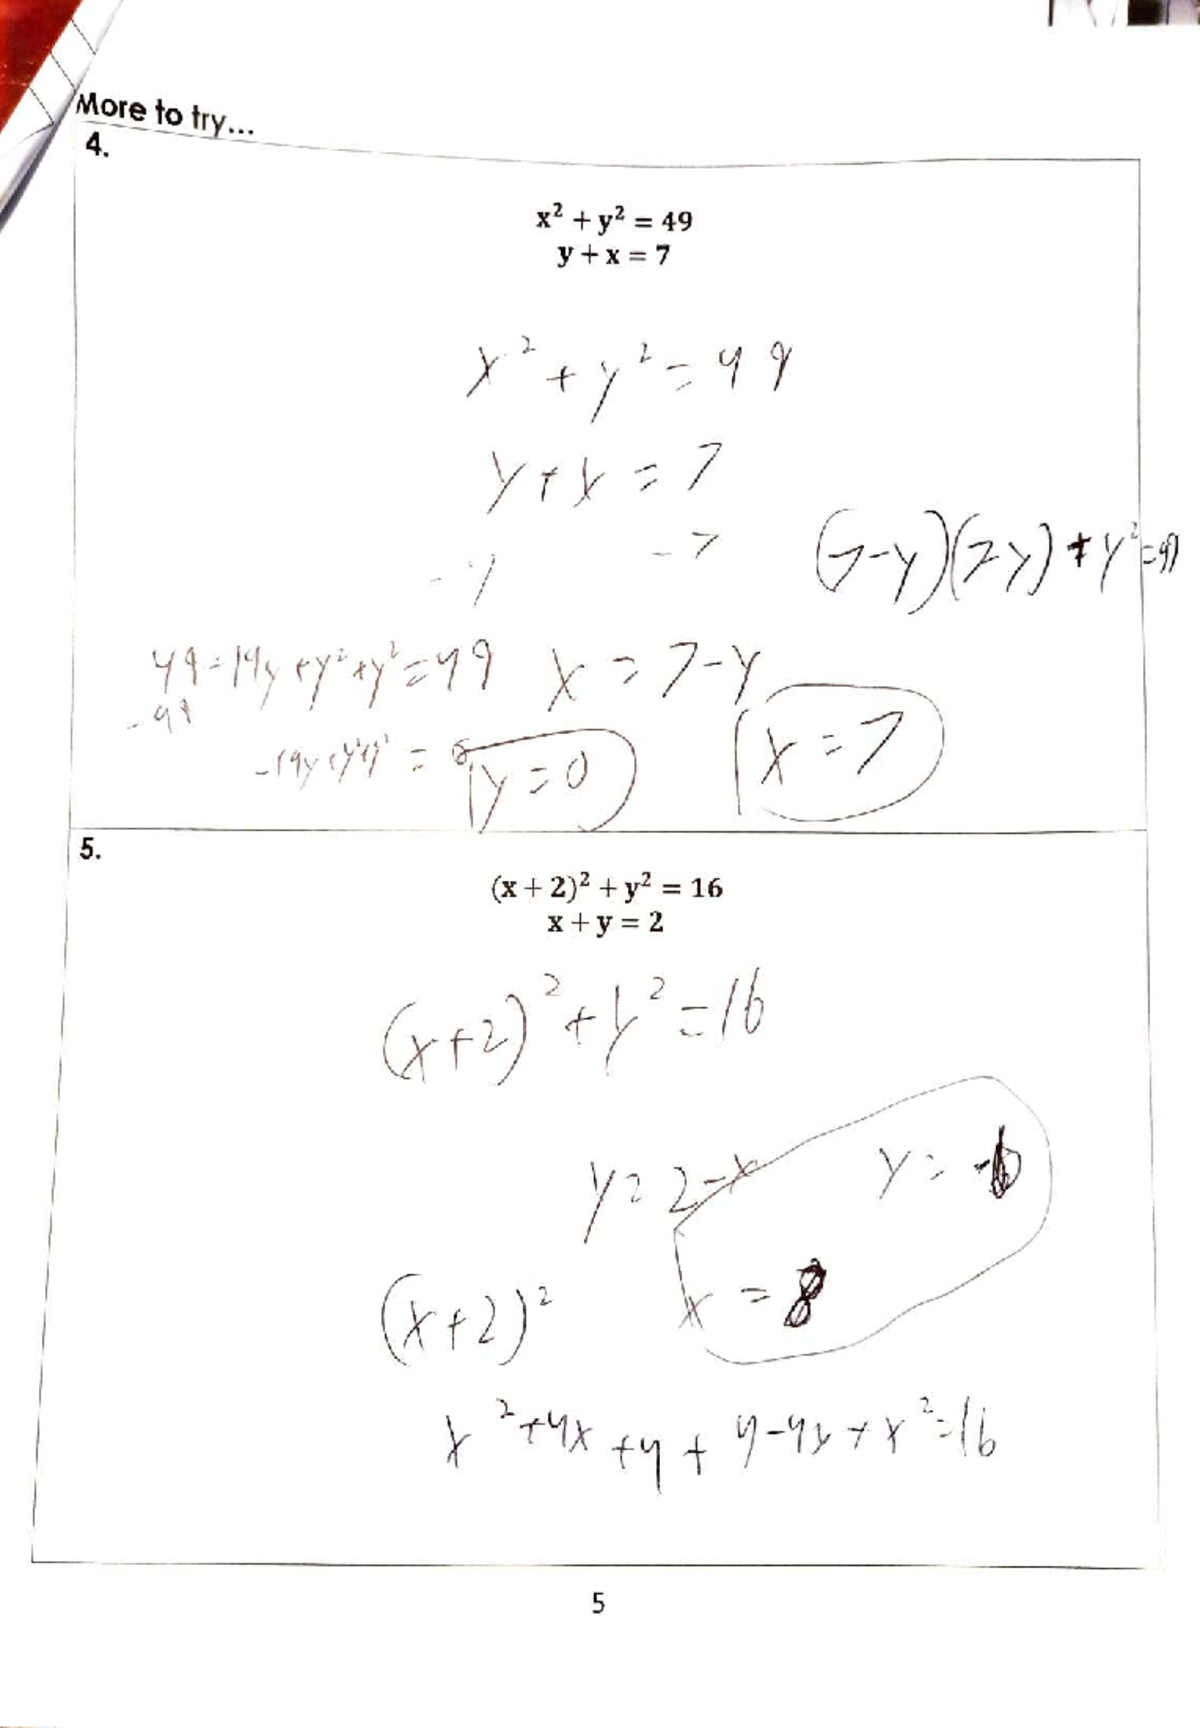 More to try...
4.
x² + y² = 49
y + x = 7
x² + y² = 49
y + x = 7
- y - 7
(7-y)(7y) + y² = 49
49 = 14y + y² + y² = 49
x = 7 - y
- 49
x = 7
y = 0
5.
(x + 2)² + y² = 16
x + y = 2
(x+2)² + y² = 16
y = 2 - x
y =
(x+2)²
x = 8
x² + 4x + 4 + 4 - 4x + x² = 16
5